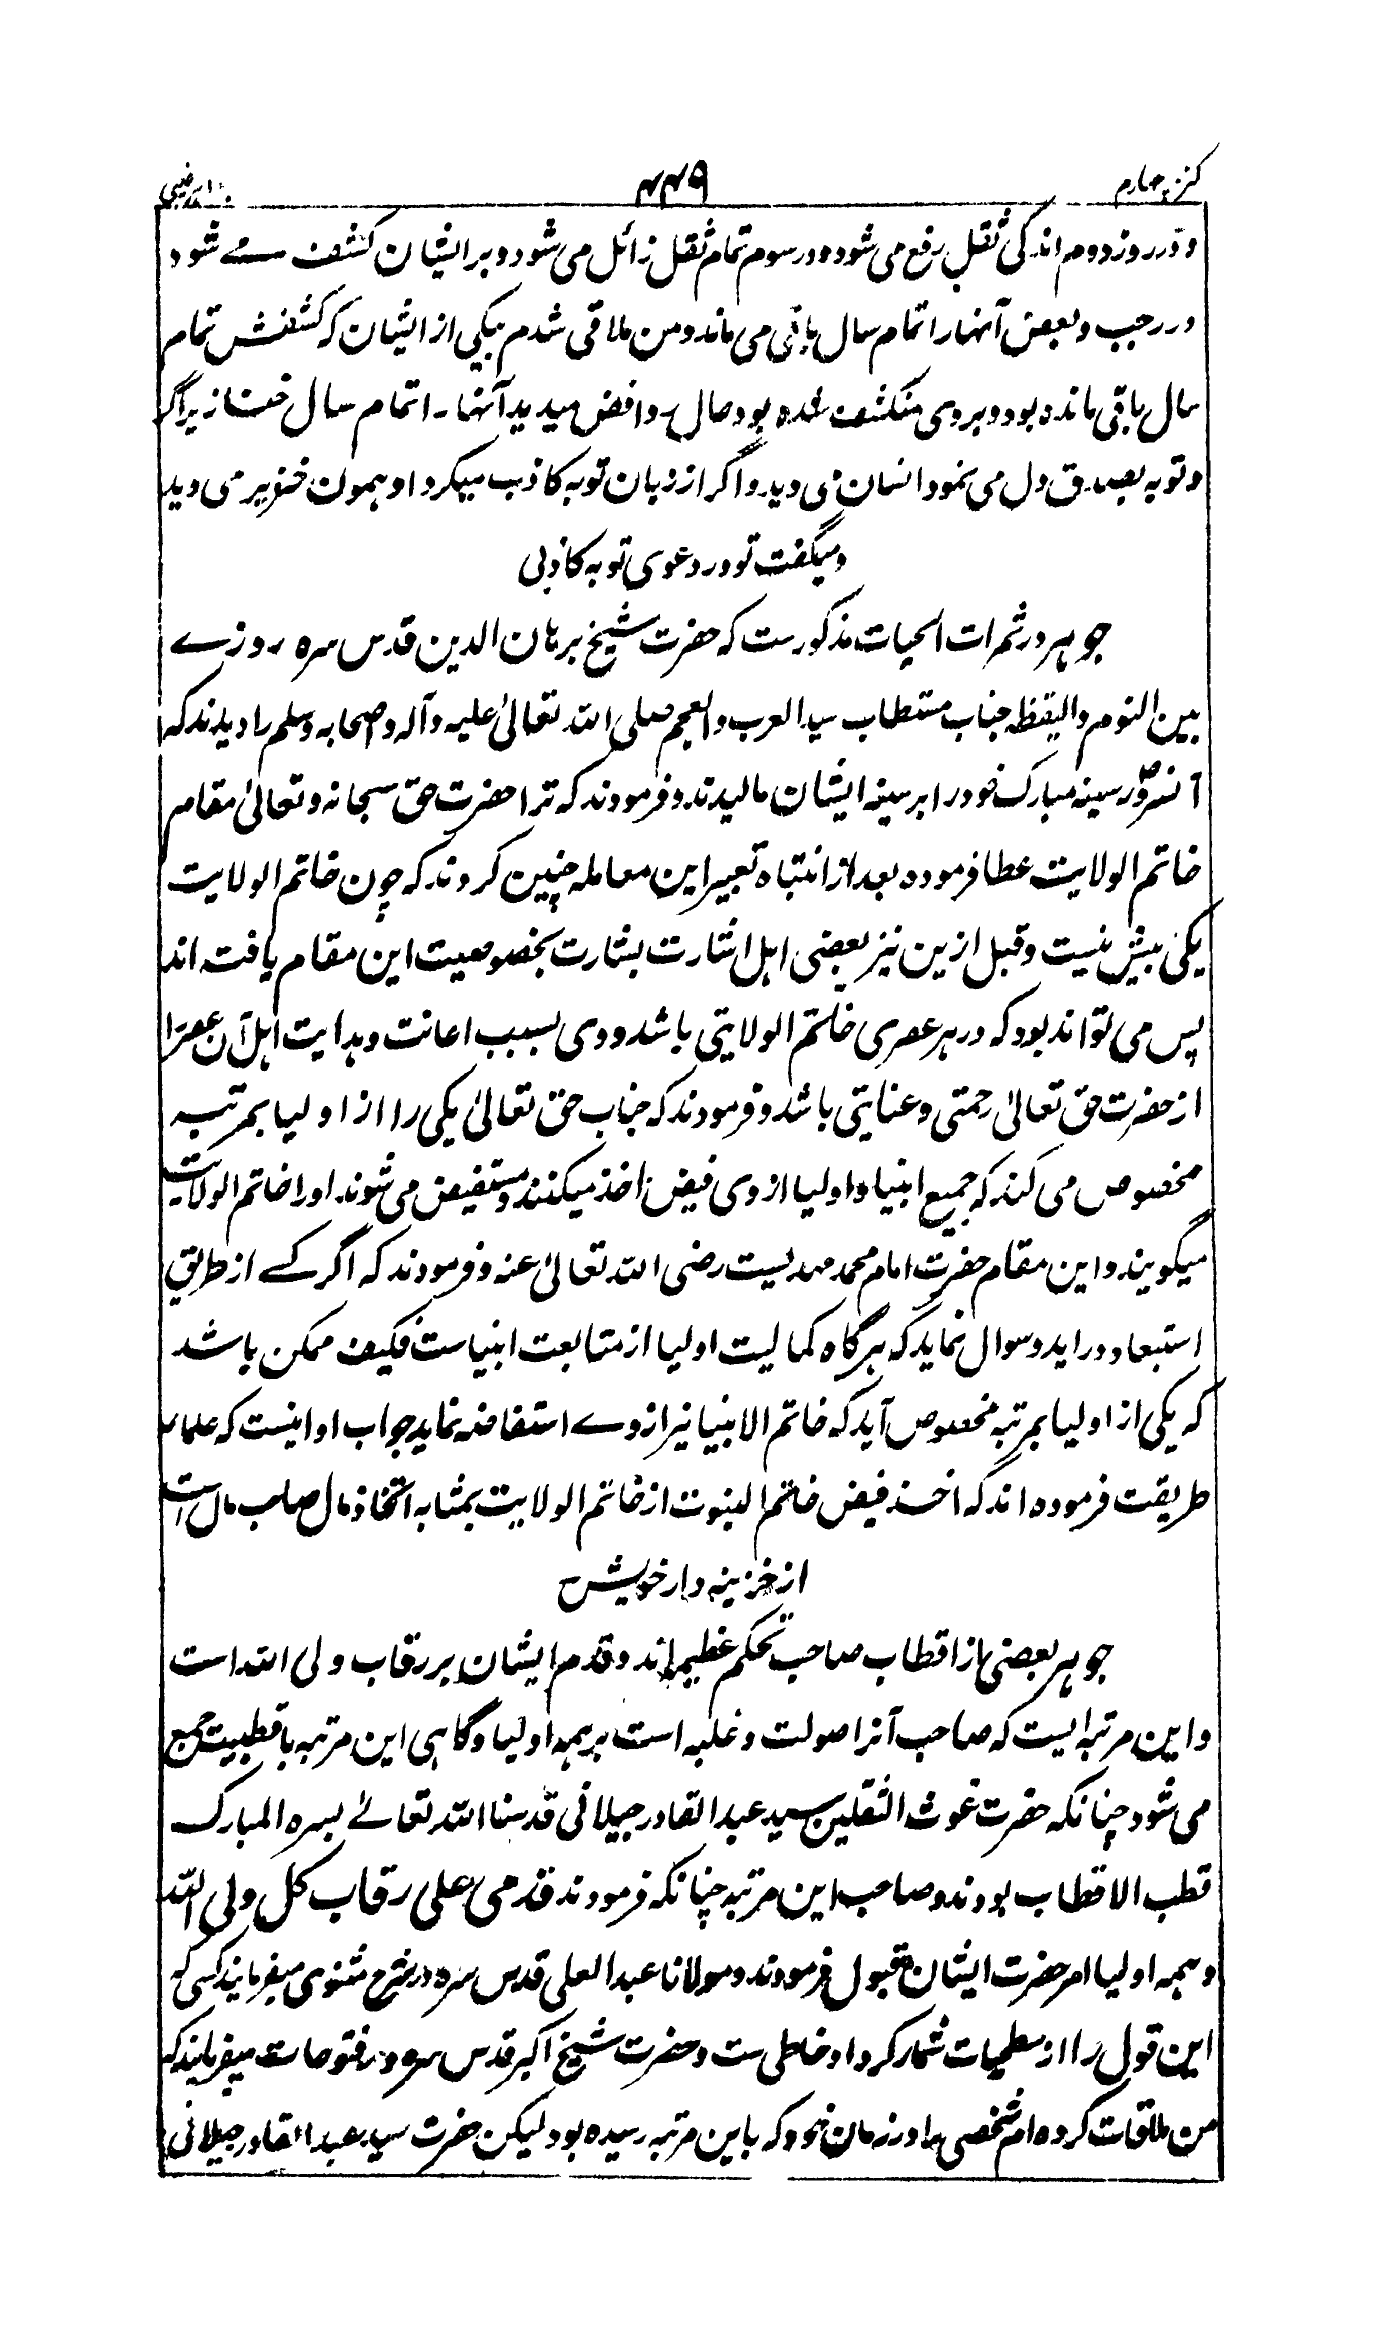 کنز چهارم
۴۴۹
و در روز دوم اندکی ثقل رفع می شود و در سوم تمام ثقل زائل می شود و بر ایشان کشف مے شود
در رجب و بعض آنها را تمام سال باقی می ماند و من ملاقی شدم بیکی از ایشان که کشفش تمام
سال باقی مانده بود و بر وی منکشف شده بود حال روافض میدید آنها را تمام سال خنازیر اگر
و توبه بصدق دل می نمود انسان می دید و اگر از زبان توبه کاذب میکرد او همون خنزیر می دید
و میگفت تو در دعوی توبه کاذبی
جوهر در ثمرات الحیات مذکورست که حضرت شیخ برهان الدین قدس سره روزے
بین النوم والیقظه جناب مستطاب سید العرب والعجم صلی الله تعالیٰ علیه وآله وصحابه وسلم را دیدند که
آنسرورؐ سینه مبارک خود را بر سینه ایشان مالیدند و فرمودند که ترا حضرت حق سبحانه و تعالیٰ مقام
خاتم الولایت عطا فرموده بعد از انتباه تعبیر این معامله چنین کردند که چون خاتم الولایت
یکی بیش نیست و قبل ازین نیز بعضی اهل اشارت بشارت بخصوصیت این مقام یافته اند
پس می تواند بود که در هر عصری خاتم الولایتی باشد و وی بسبب اعانت و هدایت اهل آن عصر را
از حضرت حق تعالیٰ رحمتی و عنایتی باشد و فرمودند که جناب حق تعالیٰ یکی را از اولیا بمرتبه
مخصوص می کند که جمیع انبیاء و اولیا از وی فیض اخذ میکنند و مستفیض می شوند او را خاتم الولایت
میگویند و این مقام حضرت امام محمد مهدیست رضی الله تعالیٰ عنه و فرمودند که اگر کسے از طریق
استبعاد در آید و سوال نماید که هرگاه کمالیت اولیا از متابعت انبیاست فکیف ممکن باشد
که یکی از اولیا بمرتبه مخصوص آید که خاتم الانبیا نیز از وے استفاضه نماید جواب او اینست که علماء
طریقت فرموده اند که اخذ فیض خاتم النبوت از خاتم الولایت بمثابه اتخاذ مال صاحب مال است
از خزینه دار خویش
جوهر بعضی از اقطاب صاحب تحکم عظیم اند و قدم ایشان بر رقاب ولی الله است
و این مرتبه ایست که صاحب آنرا صولت و غلبه است بر همه اولیا و گاهی این مرتبه با قطبیت جمع
می شود چنانکه حضرت غوث الثقلین سید عبد القادر جیلانی قدسنا الله تعالےٰ بسره المبارک
قطب الاقطاب بودند و صاحب این مرتبه چنانکه فرمودند قدمی علی رقاب کل ولی الله
و همه اولیا امر حضرت ایشان قبول فرمودند و مولانا عبد العلی قدس سره در شرح مثنوی میفرمایند کسی که
این قول را از سطحیات شمار کرد او خاطی ست و حضرت شیخ اکبر قدس سره در فتوحات میفرمایند که
من ملاقات کرده ام شخصی را در زمان خود که باین مرتبه رسیده بود لیکن حضرت سید عبد القادر جیلانی